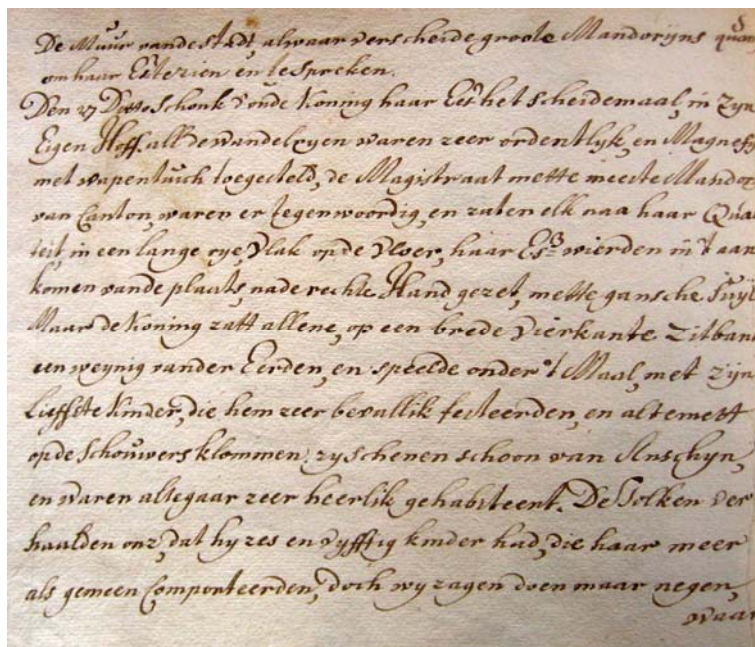 De Muur vande stadt, alwaar verscheide groote Mandorijns quam
om haar Ee: te zien en te spreken.
Den 27 Ditto schonk d'oude Koning haar Ees het scheidemaal, in zyn
Eigen Hoff, all de wandelryen waren zeer ordentlyk, en Magneff
met wapentuich toegesteld, de Magistraat mette meeste Mandor
van Canton, waren er tegenwoordig, en zaten elk naa haar Qua
teit, in een lange rye, vlak op de vloer, haar Es wierden in 't aan
komen vande plaats, na de rechte Hand gezet, mette gansche suyt
Maar de Koning zatt allene, op een brede vierkante zitban
een weynig vander Eerden, en speelde onder 't Maal, met zyn
Lieffste kinder, die hem zeer bevallik festeerden, en altemett
op de schouwers klommen, zy schenen schoon van Anschyn,
en waren altegaar zeer heerlik gehabiteert. De Tolken ver
haalden onz, dat hy zes en vyfftig kinder had, die haar meer
als gemeen Comporteerden, doch wy zagen doen maar negen,
waar